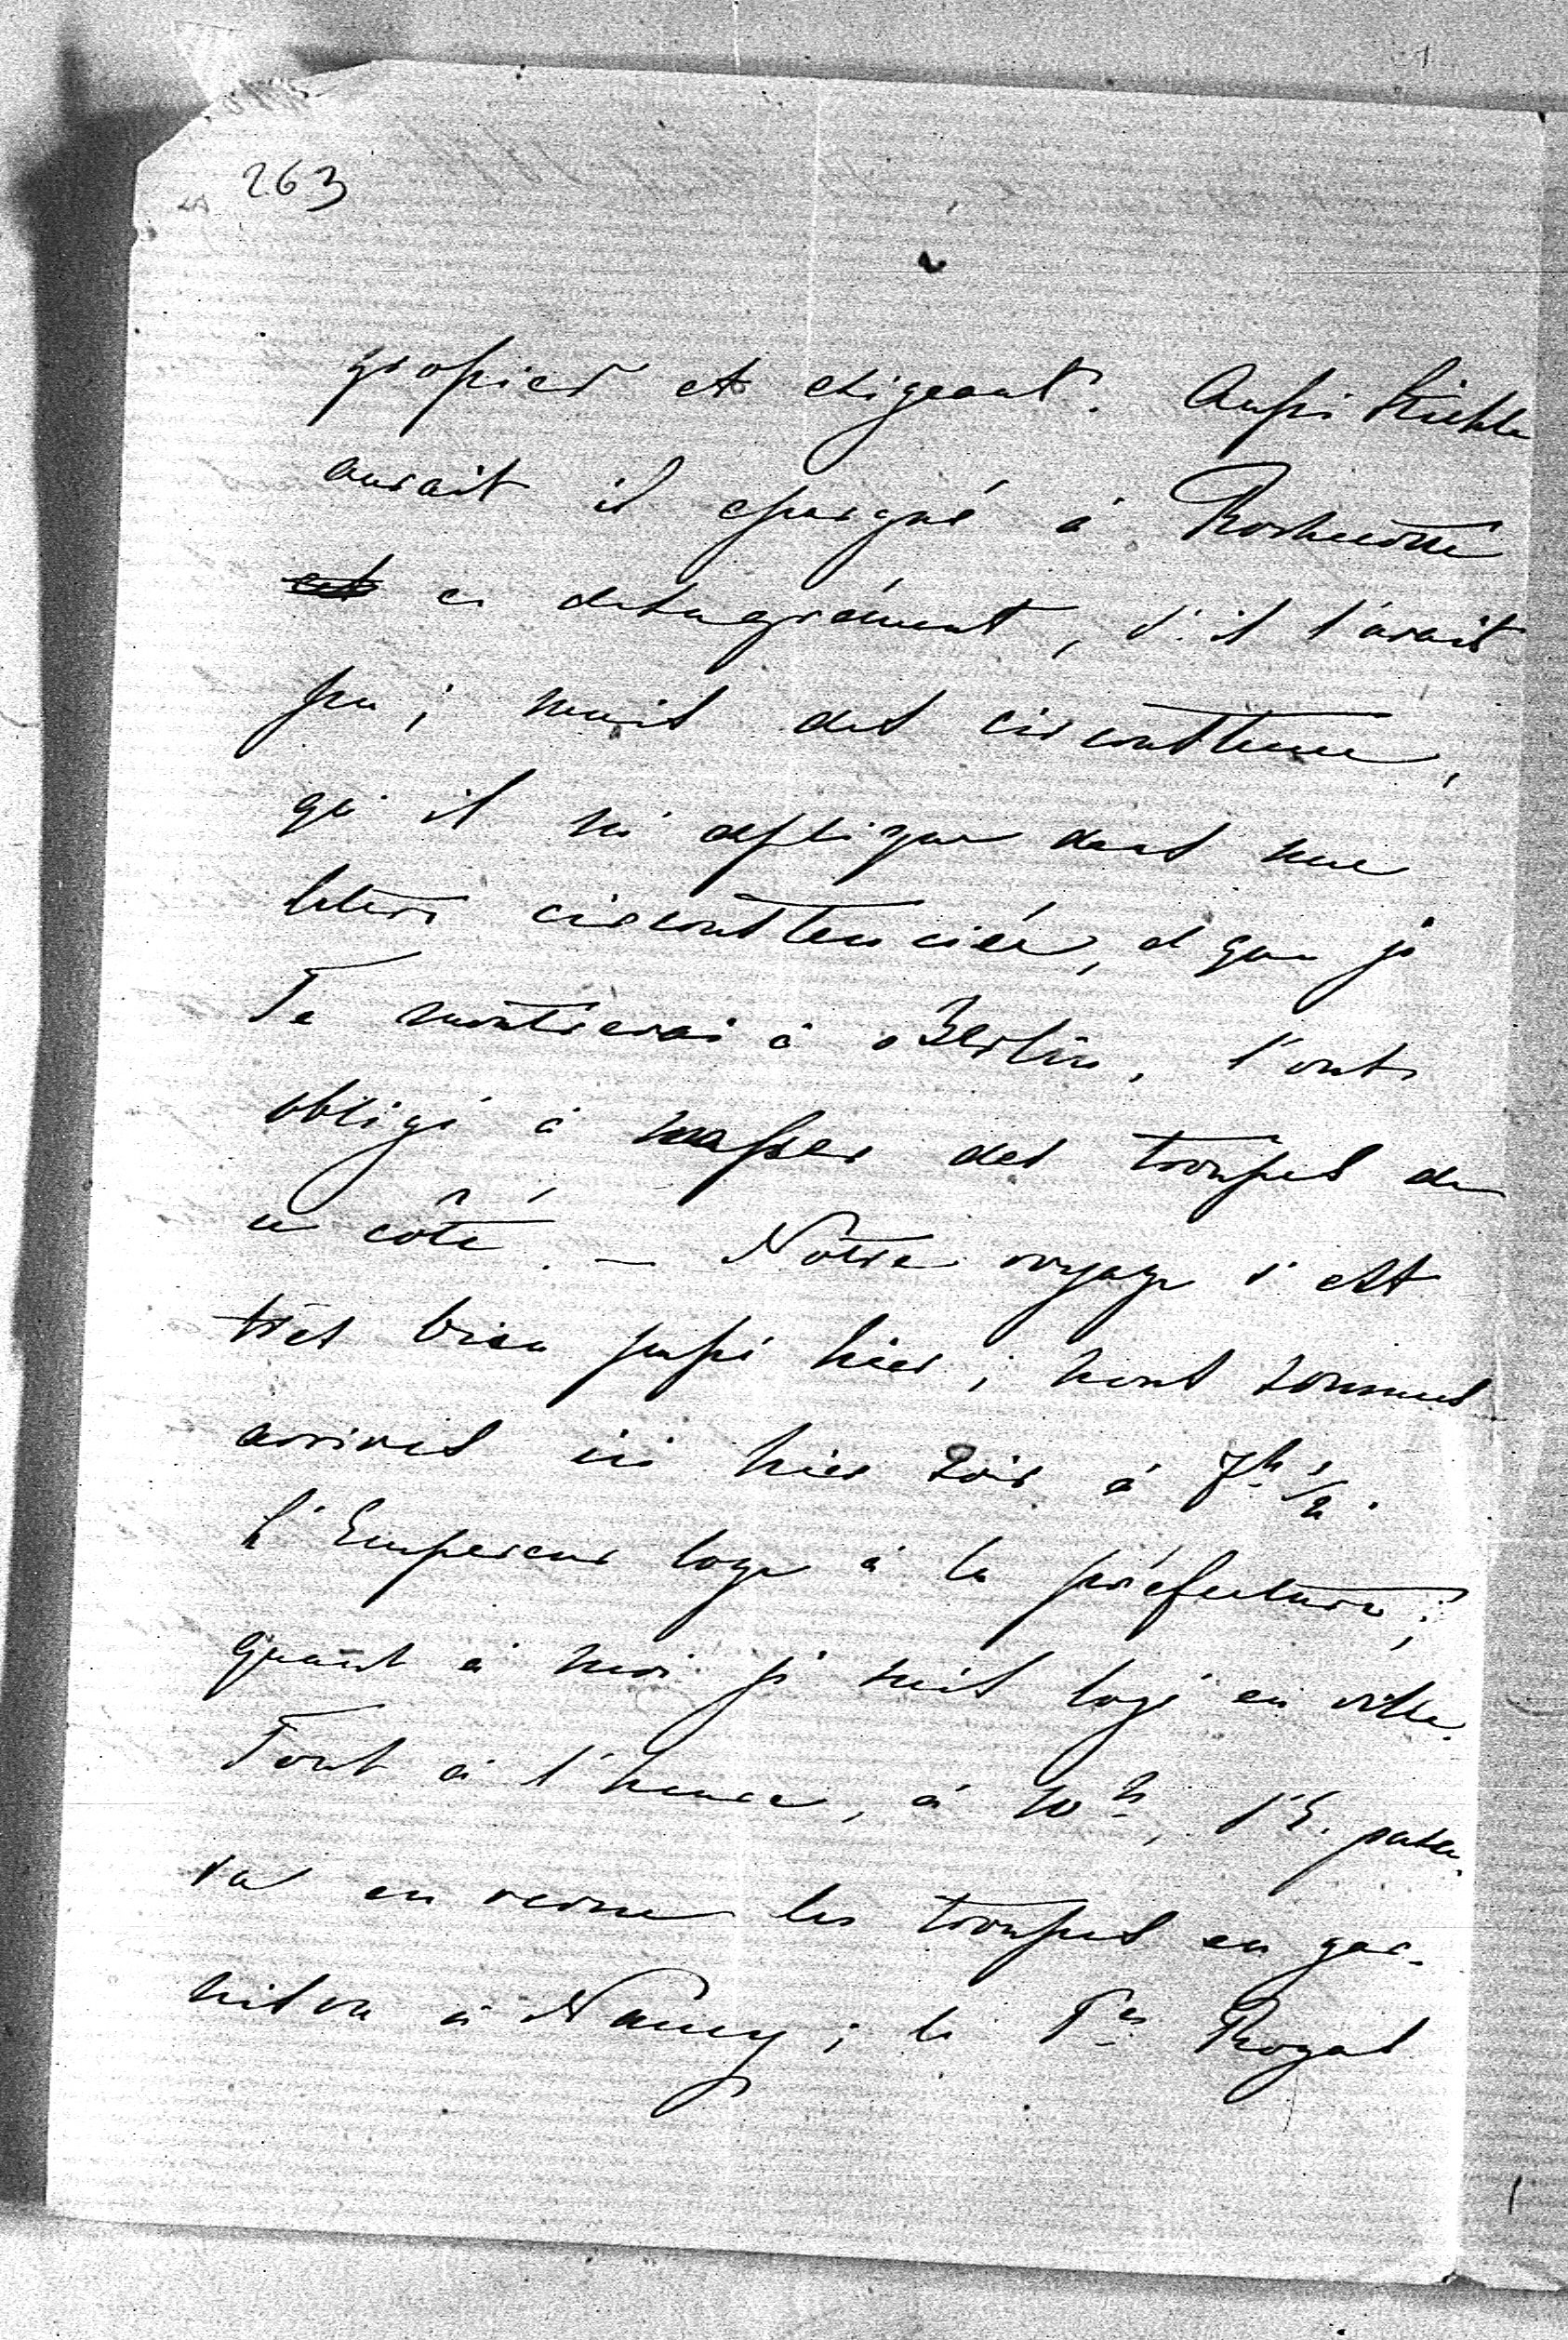 263
grossier et exigeant. Aussi Stiehle
aurait il epargné à Rochecotte
ce desagrément, s'il l'avait
pu; mais des circonstances,
qu'il m'explique dans une
lettre circonstanciée, et que je
Te montrerai à Berlin, l'ont
obligé à masser des troupes de
ce côté. — Notre voyage s'est
très bien passé hier; nous sommes
arrivés ici hier soir à 7h 1/2.
L'Empereur loge à la préfecture;
quant à moi je suis logé en ville.
Tout à l'heure, à 10h, l'E. passe-
ra en revue les troupes en gar-
nison à Nancy; le Pce Royal